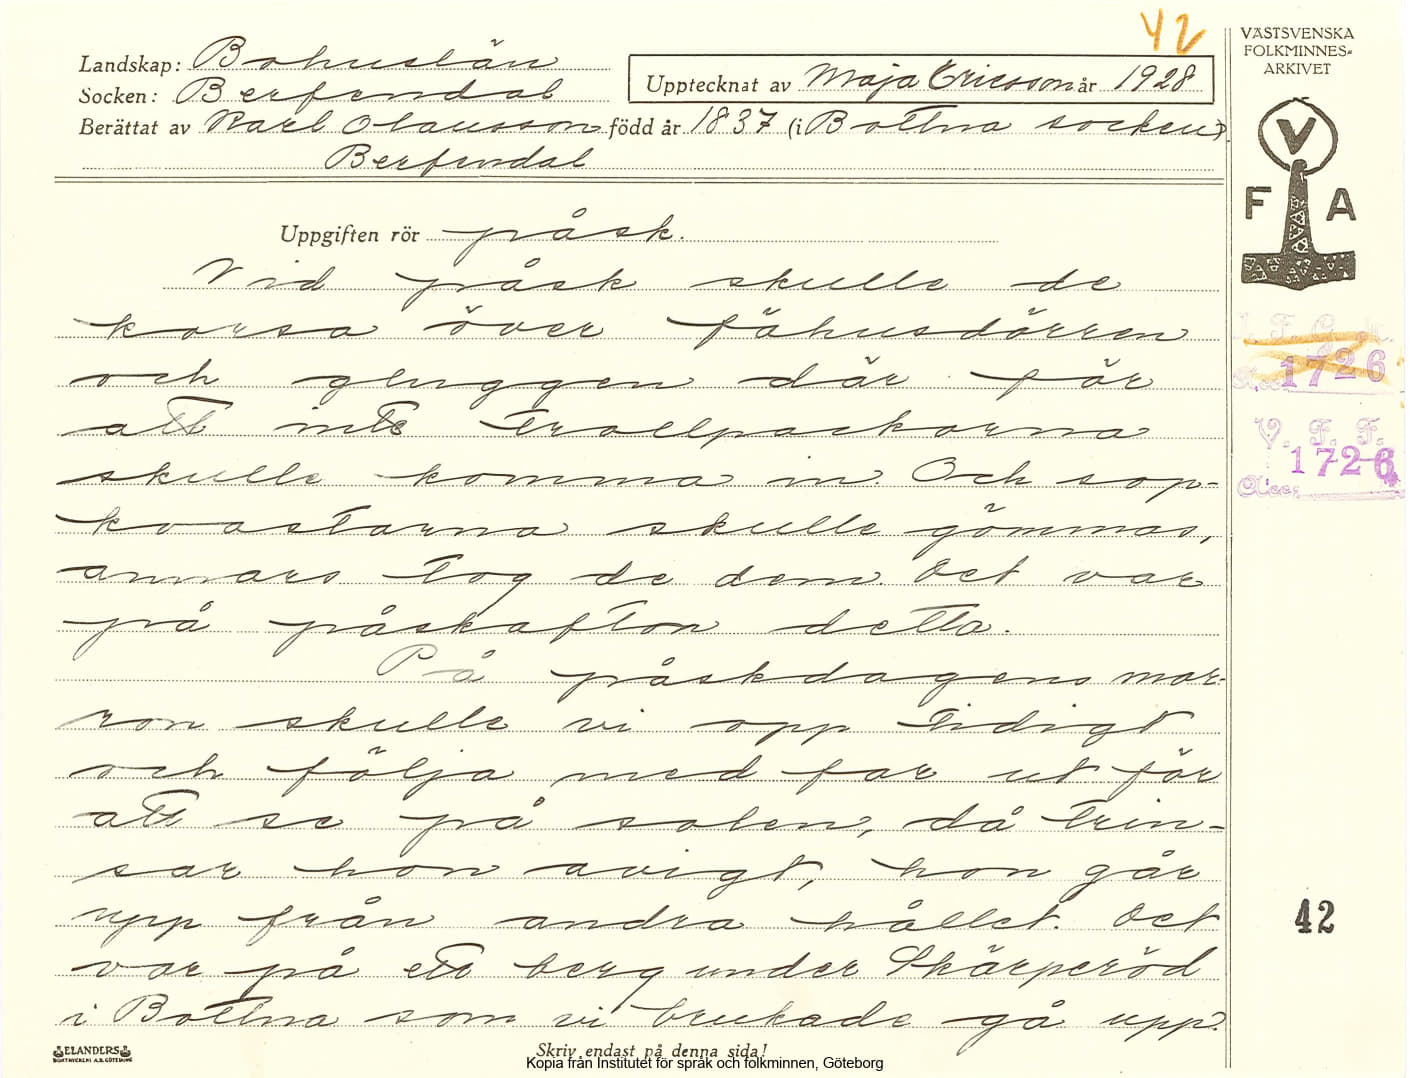 42
VÄSTSVENSKA
FOLKMINNES=
ARKIVET
Landskap: Bohuslän
Upptecknat av Maja Ericsson år 1928
Socken: Berfendal
Berättat av Karl Olausson född år 1837 (i Bottna socken)
Berfendal
V
F A
Uppgiften rör påsk.
Vid påsk skulle de
korsa över fähusdörren
och gluggen där för
att inte trollpackorna
skulle komma in Och sop-
kvastarna skulle gömmas,
annars tog de dem. Det var
på påskafton detta.
På påskdagens mor-
ron skulle vi opp tidigt
och följa med far ut för
att se på solen, då trin-
sar hon avigt, hon går
upp från andra hållet. Det
var på ett berg under Skärperöd
i Bottna som vi brukade gå upp.
I. F. G. H.
Acc. 1726
V. F. F.
Acc. 1726
42
ELANDERS
BOKTRYCKERI A.B. GÖTEBORG
Skriv endast på denna sida!
Kopia från Institutet för språk och folkminnen, Göteborg